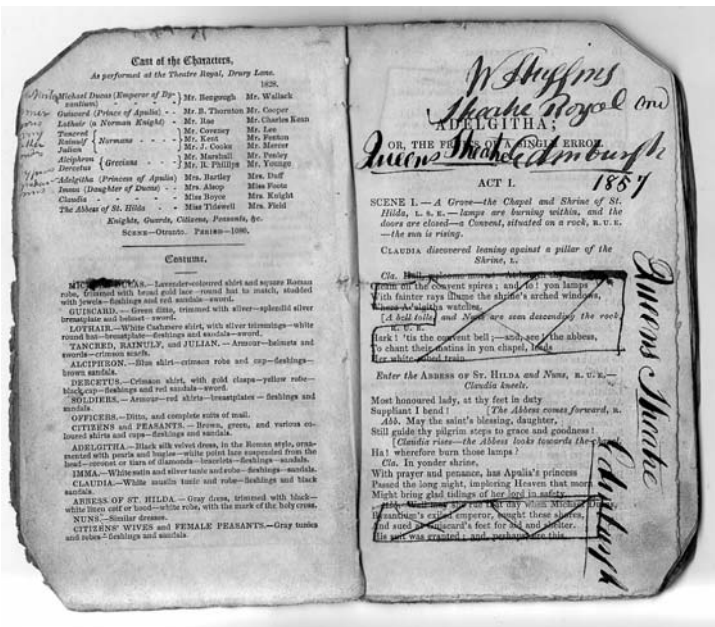 Cast of the Characters,
As performed at the Theatre Royal, Drury Lane.
1828.
Michael Ducas (Emperor of By-
zantium) - - - } Mr. Bengough Mr. Wallack
Guiscard (Prince of Apulia) - - Mr. B. Thornton Mr. Cooper
Lothair (a Norman Knight) - Mr. Rae Mr. Charles Kean
Tancred Mr. Coveney Mr. Lee
Rainulf { Normans - - - { Mr. Kent Mr. Fenton
Julian Mr. J. Cooke Mr. Mercer
Alciphron } Grecians - - { Mr. Marshall Mr. Penley
Dercetus Mr. R. Phillips Mr. Younge
Adelgitha (Princess of Apulia) Mrs. Bartley Mrs. Duff
Imma (Daughter of Ducas) - - Mrs. Alsop Miss Foote
Claudia - - - - - Miss Boyce Mrs. Knight
The Abbess of St. Hilda - - Miss Tidswell Mrs. Field
Knights, Guards, Citizens, Peasants, &c.
SCENE—Otranto. PERIOD—1080.
Costume.
MICHAEL DUCAS.—Lavender-coloured shirt and square Roman
robe, trimmed with broad gold lace—round hat to match, studded
with jewels—fleshings and red sandals—sword.
GUISCARD.—Green ditto, trimmed with silver—splendid silver
breastplate and helmet—sword.
LOTHAIR.—White Cashmere shirt, with silver trimmings—white
round hat—breastplate—fleshings and sandals—sword.
TANCRED, RAINULY, and JULIAN.—Armour—helmets and
swords—crimson scarfs.
ALCIPHRON.—Blue shirt—crimson robe and cap—fleshings—
brown sandals.
DERCETUS.—Crimson shirt, with gold clasps—yellow robe—
black cap—fleshings and red sandals—sword.
SOLDIERS.—Armour—red shirts—breastplates—fleshings and
sandals.
OFFICERS.—Ditto, and complete suits of mail.
CITIZENS and PEASANTS.—Brown, green, and various co-
loured shirts and caps—fleshings and sandals.
ADELGITHA.—Black silk velvet dress, in the Roman style, orna-
mented with pearls and bugles—white point lace suspended from the
head—coronet or tiara of diamonds—bracelets—fleshings—sandals.
IMMA.—White satin and silver tunic and robe—fleshings—sandals.
CLAUDIA.—White muslin tunic and robe—fleshings and black
sandals.
ABBESS OF ST. HILDA.—Gray dress, trimmed with black—
white linen coif or hood—white robe, with the mark of the holy cross.
NUNS.—Similar dresses.
CITIZENS' WIVES and FEMALE PEASANTS.—Gray tunics
and robes—fleshings and sandals.
W Stuffins
Theatre Royal and
ADELGITHA;
OR, THE FRUITS OF A SINGLE ERROR.
Queens Theatre Edinburgh
1857
ACT I.
SCENE I.—A Grove—the Chapel and Shrine of St.
Hilda, L. S. E.—lamps are burning within, and the
doors are closed—a Convent, situated on a rock, R. U. E.
—the sun is rising.
CLAUDIA discovered leaning against a pillar of the
Shrine, L.
Cla. Hail, welcome morn! At length thy
gleam on the convent spires; and, lo! yon lamps
With fainter rays illume the shrine's arched windows,
Where Adelgitha watches.
[A bell tolls, and Nuns are seen descending the rock,
R. U. E.
Hark! 'tis the convent bell;—and, see! the abbess,
To chant their matins in yon chapel, leads
Her white-robed train.
Enter the ABBESS OF ST. HILDA and Nuns, R. U. E.—
Claudia kneels.
Most honoured lady, at thy feet in duty
Suppliant I bend! [The Abbess comes forward, R.
Abb. May the saint's blessing, daughter,
Still guide thy pilgrim steps to grace and goodness!
[Claudia rises—the Abbess looks towards the chapel.
Ha! wherefore burn those lamps?
Cla. In yonder shrine,
With prayer and penance, has Apulia's princess
Passed the long night, imploring Heaven that morn
Might bring glad tidings of her lord in safety.
Abb. Well may she rue that day when Michael Ducas,
Byzantium's exiled emperor, sought these shores,
And sued at Guiscard's feet for aid and shelter.
His suit was granted; and, perhaps, ere this,
Queens Theatre
Edinburgh